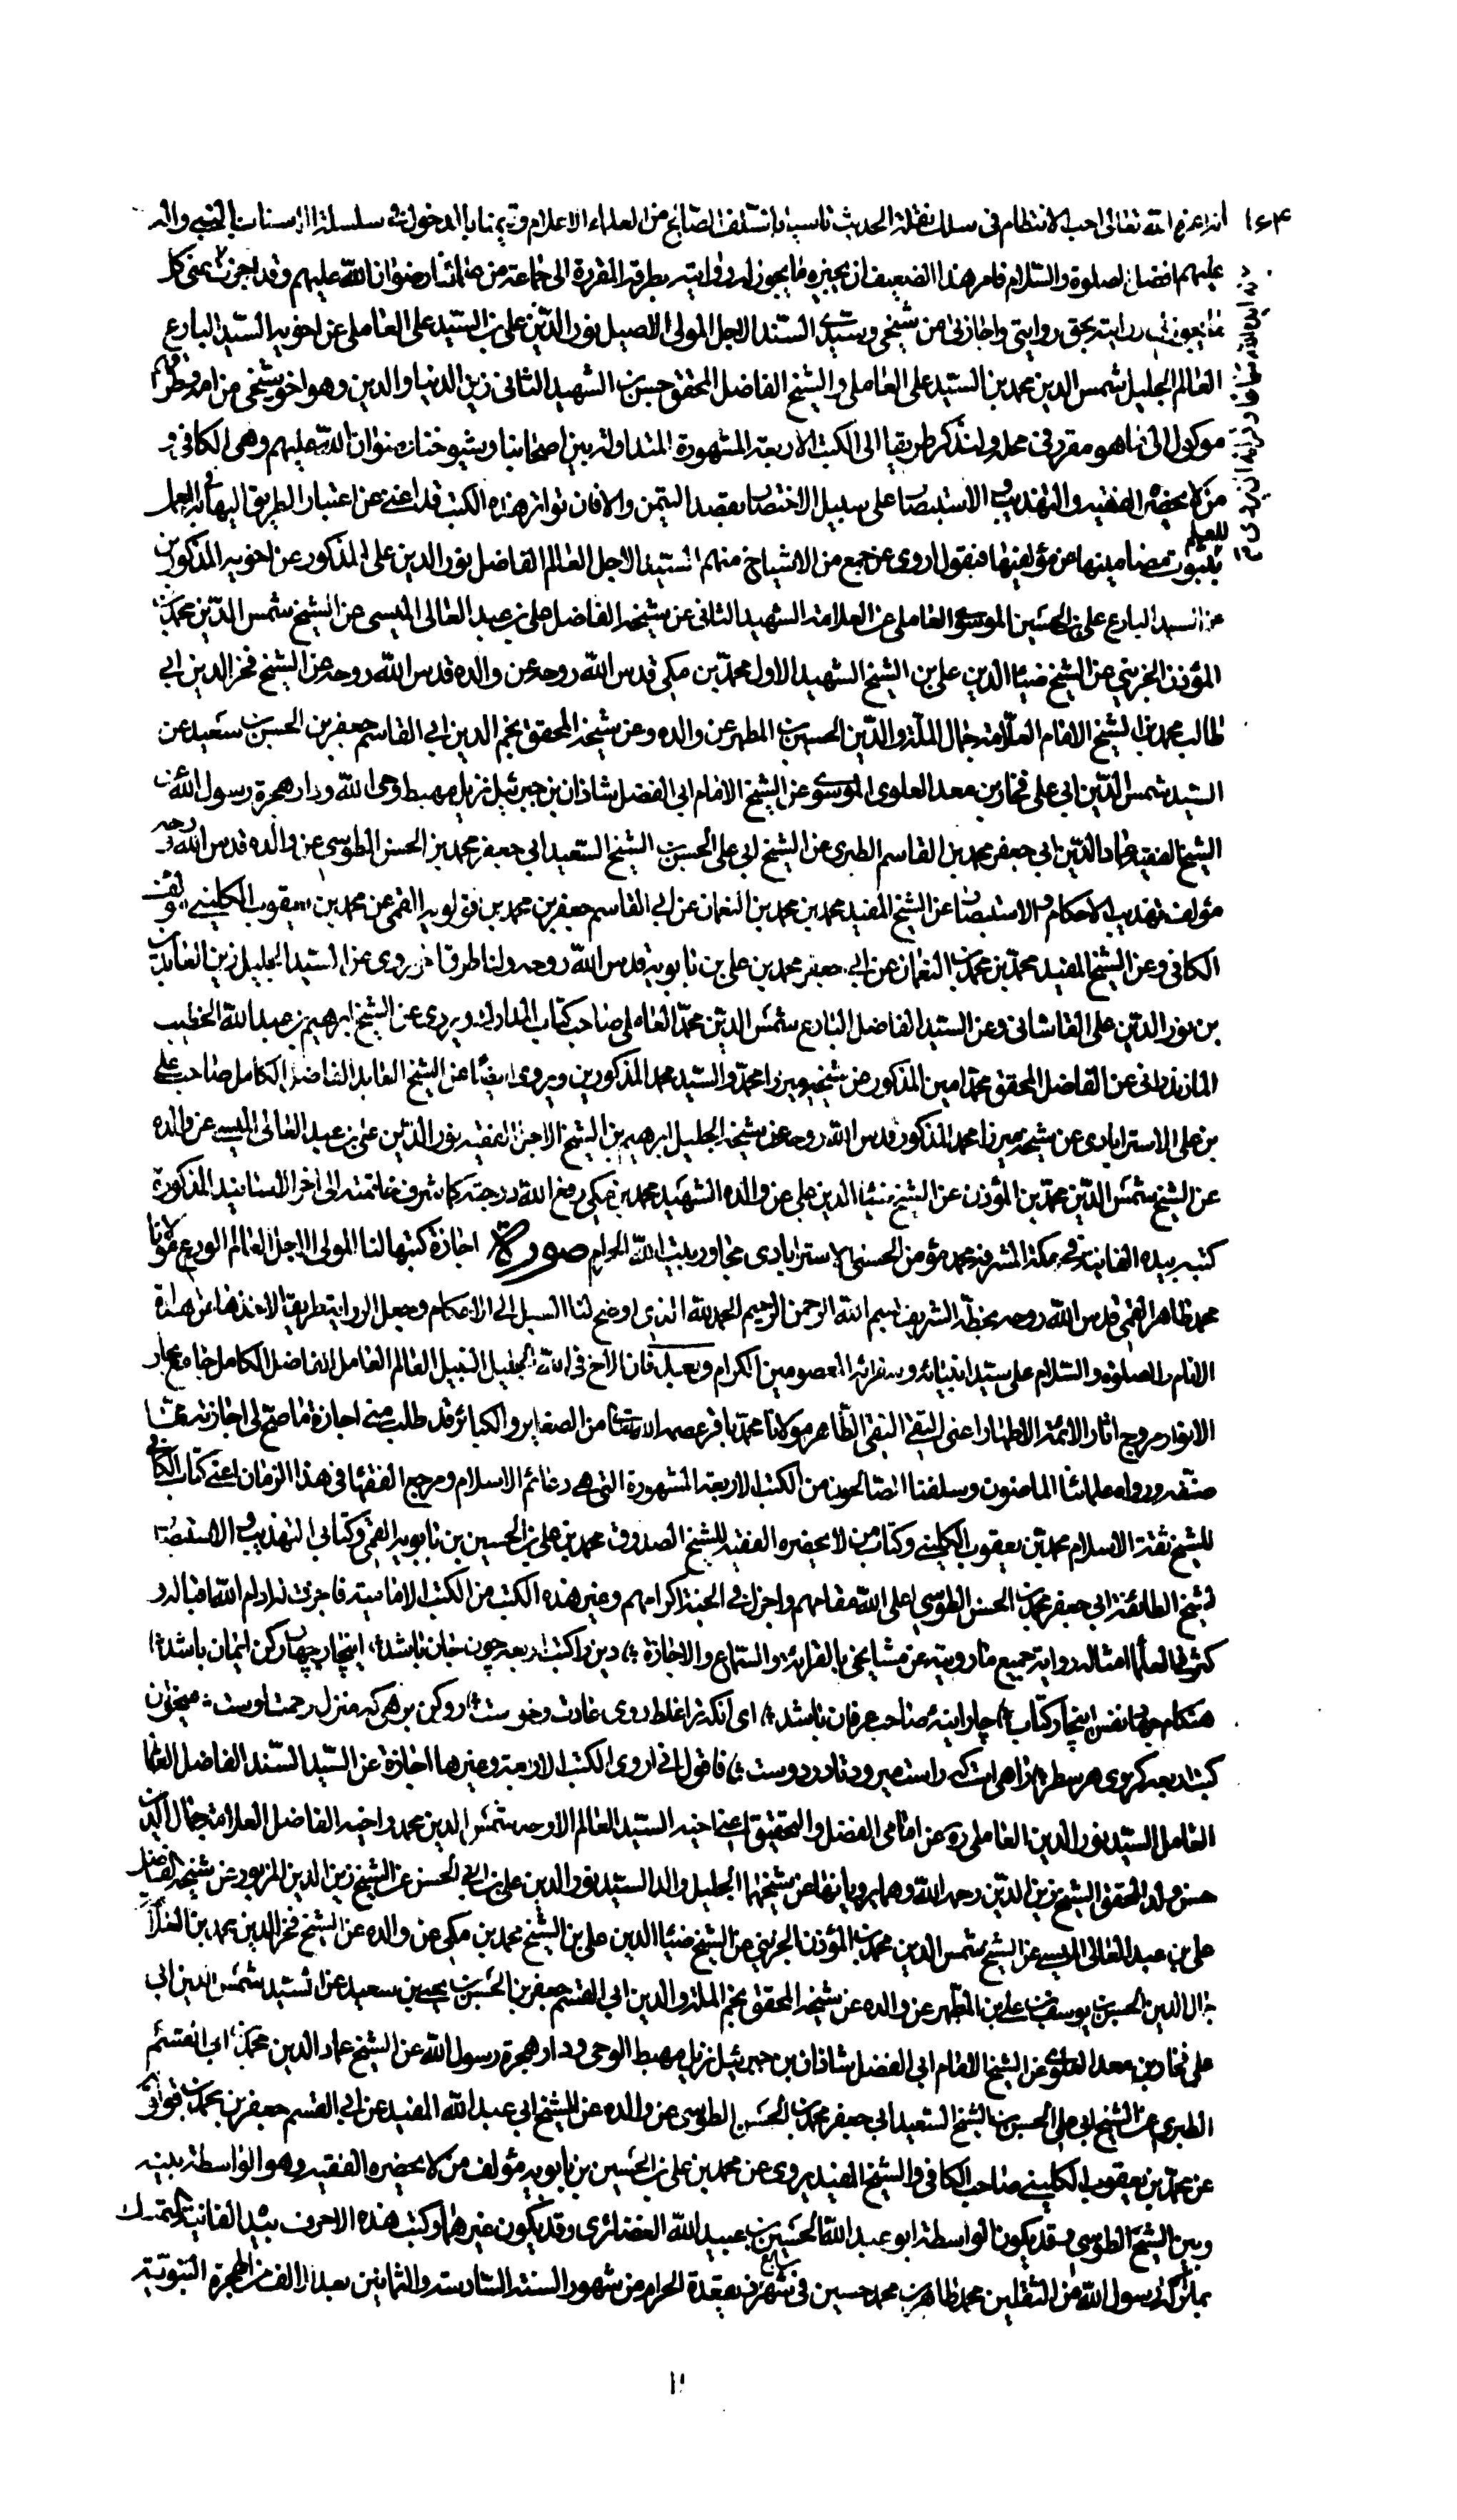 ١٦٤
ادام عزه الله تعالى احب الانتظام فى سلك نقلة الحديث تاسيا بالسلف الصالح من العلماء الاعلام وتيمنا بالدخول فى سلسلة الاسناد بالنبي واله
عليهم افضل الصلوة والسلام فامر هذا الضعيف ان يجيزه ما يجوز له روايته بطرقه المقررة الى جماعة من علمائنا رضوان الله عليهم وقد اجزت
روايته بحق روايتي واجازتى من شيخي وسيدى السند الاجل المولى الاصيل نور الدين على بن السيد على العاملى عن اخويه السيد البارع
العالم الجليل شمس الدين محمد بن السيد على العاملى والشيخ الفاضل المحقق حسن بن الشهيد الثانى زين الدنيا والدين وهو اخو شيخى من امه
موكول الى ما هو مقرر فى محله ولنذكر طريقا الى الكتب الاربعة المشهورة المتداولة بين اصحابنا وشيوخنا رضوان الله عليهم وهى الكافى و
من لا يحضره الفقيه والتهذيب والاستبصار على سبيل الاختصار بقصد التيمن والا فان تواتر هذه الكتب قد اغنى عن اعتبار الطريق اليها
للعلم
بثبوت مضامينها عن مؤلفيها فنقول اروى عن جمع من الاشياخ منهم السيد الاجل العالم الفاضل نور الدين على المذكور عن اخويه المذكورين
عن السيد البارع على بن الحسين الموسوى العاملى عن العلامة الشهيد الثانى عن شيخه الفاضل على بن عبد العالى الميسى عن الشيخ شمس الدين محمد بن
المؤذن الجزينى عن الشيخ ضياء الدين على بن الشيخ الشهيد الاول محمد بن مكى قدس الله روحه عن والده قدس الله روحه عن الشيخ فخر الدين ابى
طالب محمد بن الشيخ الامام العلامة جمال الملة والدين الحسن بن المطهر عن والده وعن شيخه المحقق نجم الدين ابى القاسم جعفر بن الحسن بن سعيد عن
السيد شمس الدين ابى على فخار بن معد العلوى الموسوى عن الشيخ الامام ابى الفضل شاذان بن جبرئيل نزيل مهبط وحى الله ودار هجرة رسول الله عن
الشيخ الفقيه عماد الدين ابى جعفر محمد بن القاسم الطبرى عن الشيخ ابى على الحسن بن الشيخ السعيد ابى جعفر محمد بن الحسن الطوسى عن والده قدس الله روحه
مؤلف تهذيب الاحكام والاستبصار عن الشيخ المفيد محمد بن محمد بن النعمان عن ابى القاسم جعفر بن محمد بن قولويه القمى عن محمد بن يعقوب الكلينى مؤلف
الكافى وعن الشيخ المفيد محمد بن محمد بن النعمان عن ابى جعفر محمد بن على بن بابويه قدس الله روحه ولنا طرق اخر نروى عن السيد الجليل زين العابدين
بن نور الدين على القاشانى وعن السيد الفاضل البارع شمس الدين محمد العاملى صاحب كتاب المدارك ويروى عن الشيخ ابرهيم بن عبد الله الخطيب
المازندرانى عن الفاضل المحقق محمد امين المذكور عن شيخيه ميرزا محمد والسيد محمد المذكورين ويروى ايضا عن الشيخ العابد الفاضل الكامل صاحب على
بن على الاسترابادى عن شيخه ميرزا محمد المذكور قدس الله روحه عن شيخه الجليل ابرهيم بن الشيخ الاجل الفقيه نور الدين على بن عبد العالى الميسى عن والده
عن الشيخ شمس الدين محمد بن المؤذن عن الشيخ ضياء الدين على عن والده الشهيد محمد بن مكى رفع الله درجته كما شرف خاتمته الى اخر الاسانيد المذكورة
كتبه بيده الفانية فى مكة المشرفة محمد مؤمن الحسينى الاسترابادى مجاور بيت الله الحرام صورة اجازة كتبها لنا المولى الاجل العالم الورع مولانا
محمد طاهر القمى قدس الله روحه بخطه الشريف بسم الله الرحمن الرحيم الحمد لله الذى اوضح لنا السبيل الى الاحكام وجعل الرواية طريقا الاخذها عن هداة
الانام والصلوة والسلام على سيد انبيائه وسفرائه المعصومين الكرام وبعد فان الاخ فى الله الجليل النبيل العالم العامل الفاضل الكامل جامع بحار
الانوار مروج اثار الائمة الاطهار اعنى التقى النقى الطاهر مولانا محمد باقر عصمه الله من الصغاير والكبائر قد طلب منى اجازة ما صح لى اجازته مما
صنفه ورواه علمائنا الماضون وسلفنا الصالحون من الكتب الاربعة المشهورة التى هى دعائم الاسلام ومرجع الفقها فى هذا الزمان اعنى كتاب الكافى
للشيخ ثقة الاسلام محمد بن يعقوب الكلينى وكتاب من لا يحضره الفقيه للشيخ الصدوق محمد بن على بن الحسين بن بابويه القمى وكتابى التهذيب والاستبصار
لشيخ الطائفة ابى جعفر محمد بن الحسن الطوسى اعلى الله مقامهم واجزل فى الجنة اكرامهم وغير هذه الكتب من الكتب الامامية فاجزت له ادام الله اقباله و
كثر فى العلماء امثاله رواية جميع ما رويته عن مشايخى بالقراءة والسماع والاجازة دين را كتب اربعه چون جان باشد اين چار چهار ركن ايمان باشد
هنكام جهاد نفس اين چار كتاب چار اينه صاحب عرفان باشد اى آنكه ترا غلط روى عادت وخوست روكن برهى كه منزل رحمت اوست ميخوان
كتب اربعه كز وى هر سطر راهيست كه راست ميرود تا در دوست فاقول انى اروى الكتب الاربعة وغيرها اجازة عن السيد السند الفاضل العالم
العامل السيد نور الدين العاملى ره عن امامى الفضل والتحقيق اعنى اخيه السيد العالم الاوحد شمس الدين محمد واخيه الفاضل العلامة جمال الدين
حسن ولد المحقق الشيخ زين الدين رحمه الله وهما يرويانها عن شيخهما الجليل والد السيد نور الدين على بن ابى الحسن عن الشيخ زين الدين المزبور عن شيخه الفاضل
على بن عبد العالى الميسى عن الشيخ شمس الدين محمد بن المؤذن الجزينى عن الشيخ ضياء الدين على بن الشيخ محمد بن مكى عن والده عن الشيخ فخر الدين محمد بن العلامة
جمال الدين الحسن بن يوسف بن على بن المطهر عن والده عن شيخه المحقق نجم الملة والدين ابى القسم جعفر بن الحسن بن يحيى بن سعيد عن السيد شمس الدين ابى
على فخار بن معد العلوى عن الشيخ الامام ابى الفضل شاذان بن جبرئيل نزيل مهبط الوحى ودار هجرة رسول الله عن الشيخ عماد الدين محمد بن ابى القسم
الطبرى عن الشيخ ابى على الحسن بن الشيخ السعيد ابى جعفر محمد بن الحسن الطوسى عن والده عن الشيخ ابى عبد الله المفيد عن ابى القسم جعفر بن محمد بن قولويه
عن محمد بن يعقوب الكلينى صاحب الكافى والشيخ المفيد يروى عن محمد بن على بن الحسين بن بابويه مؤلف من لا يحضره الفقيه وهو الواسطة بينه
وبين الشيخ الطوسى وقد يكون الواسطة ابو عبد الله الحسين بن عبيد الله الغضائرى وقد يكون غيرهما وكتب هذه الاحرف بيده الفانية المتمسك
بما تركه رسول الله من الثقلين محمد طاهر بن محمد حسين فى سابع شهر ذى قعدة الحرام من شهور السنة السادسة والثمانين بعد الالف من الهجرة النبوية